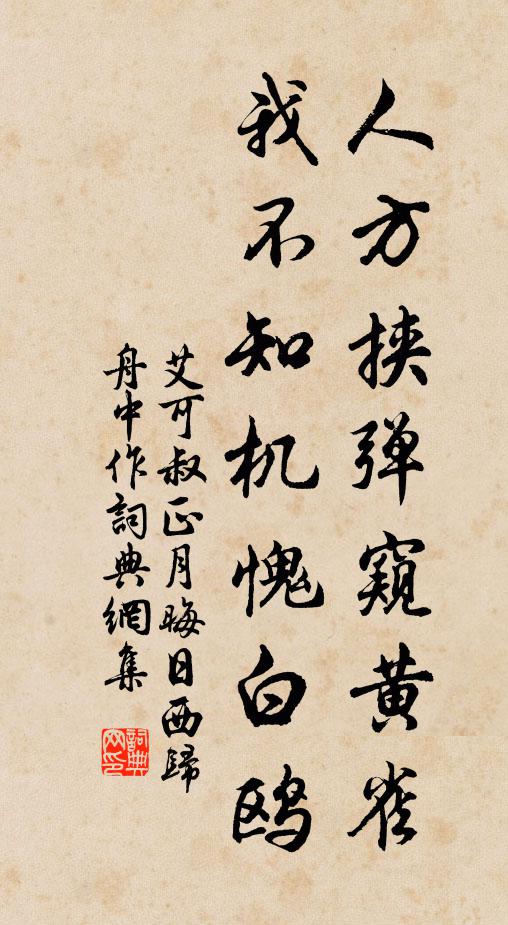 人方挟弹窥黄雀
我不知机愧白鸥
艾可叔正月晦日西歸
舟中作詞典網集
詞典網印